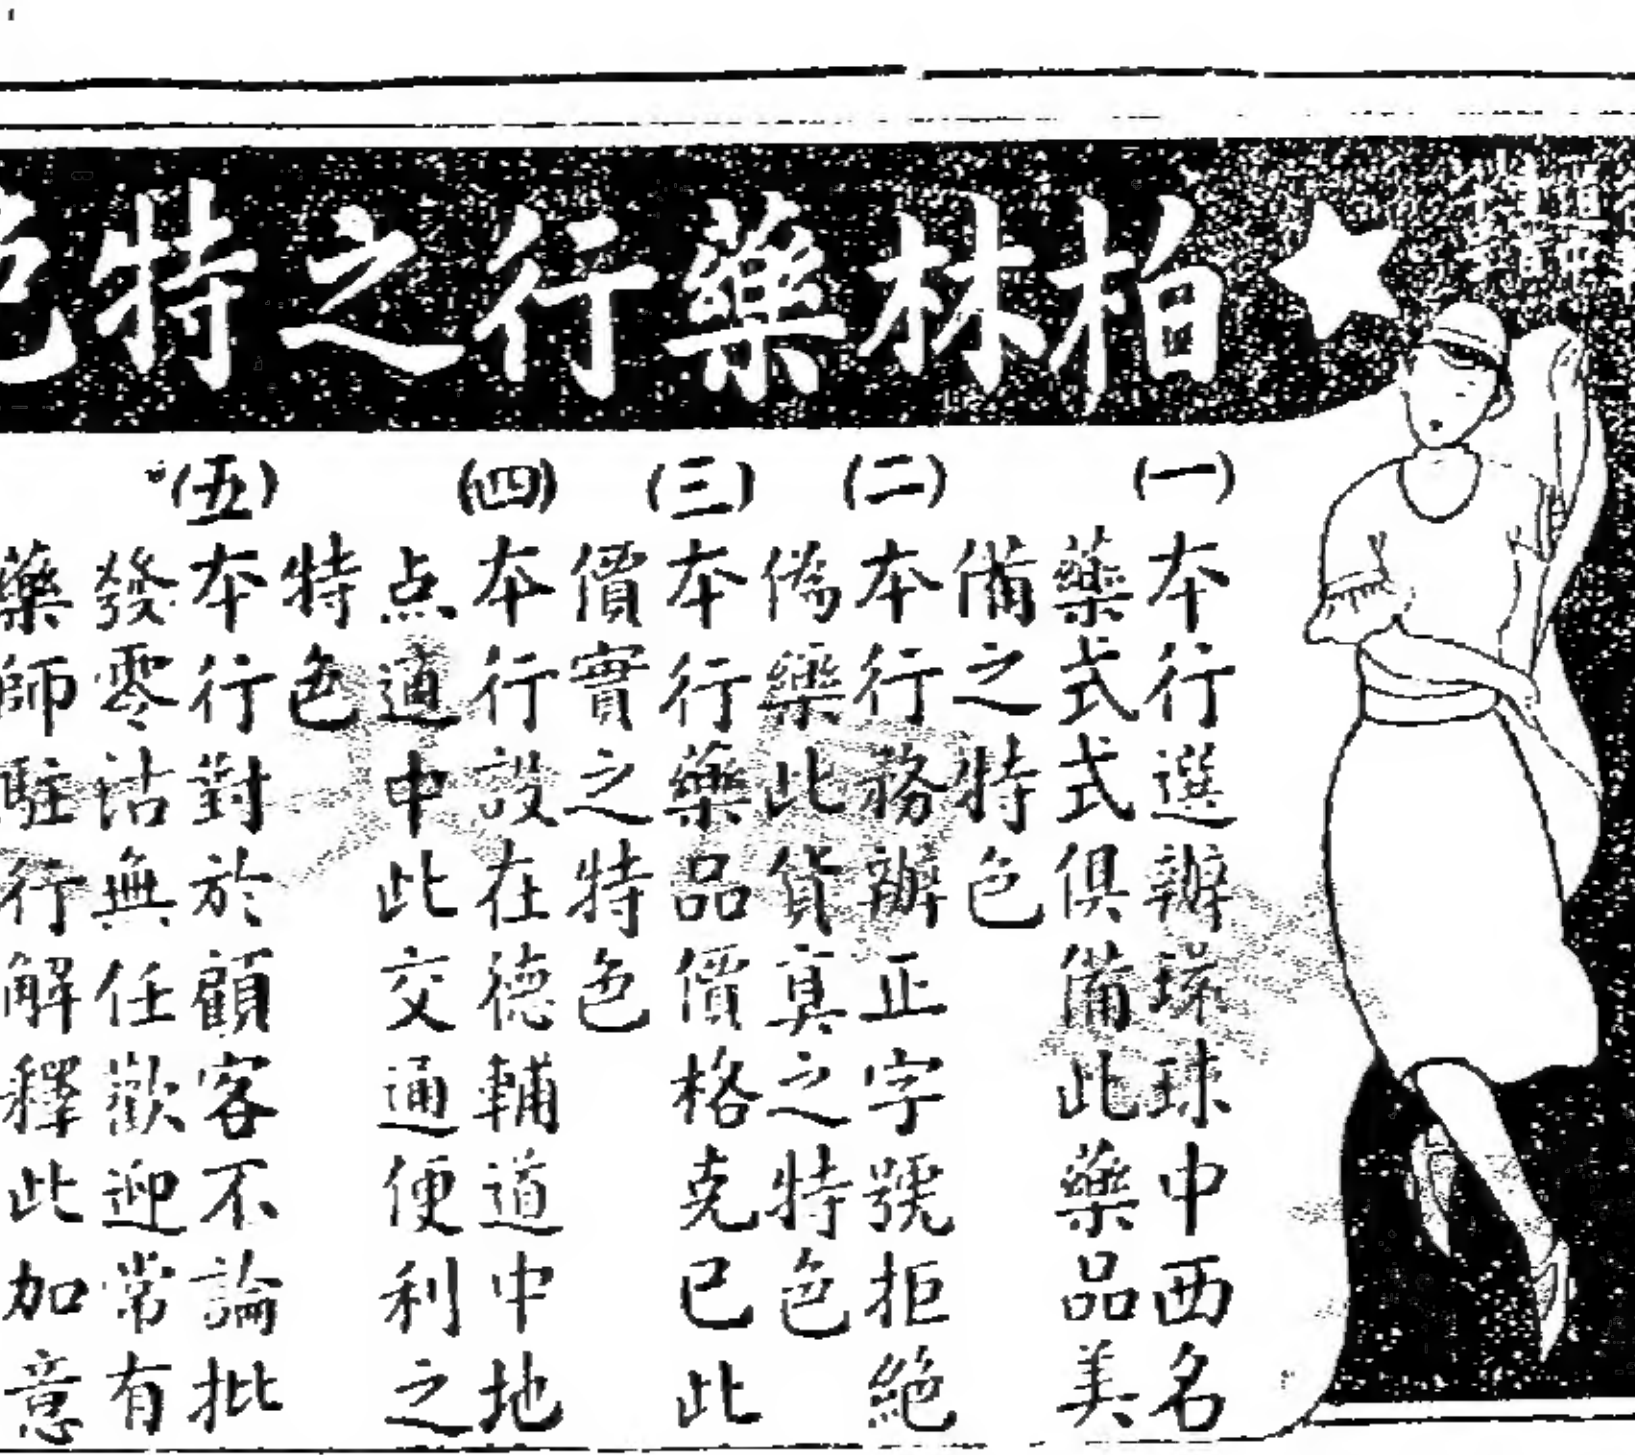 柏林藥行之特色
(一)本行選辦環球中西名
藥式式俱備此藥品美
備之特色
(二)本行務辦正字號拒絕
偽藥此貨真之特色
(三)本行藥品價格克已此
價實之特色
(四)本行設在德輔道中地
点適中此交通便利之
特色
(五)本行對於顧客不論批
發零沽無任歡迎常有
藥師駐行解釋此加意